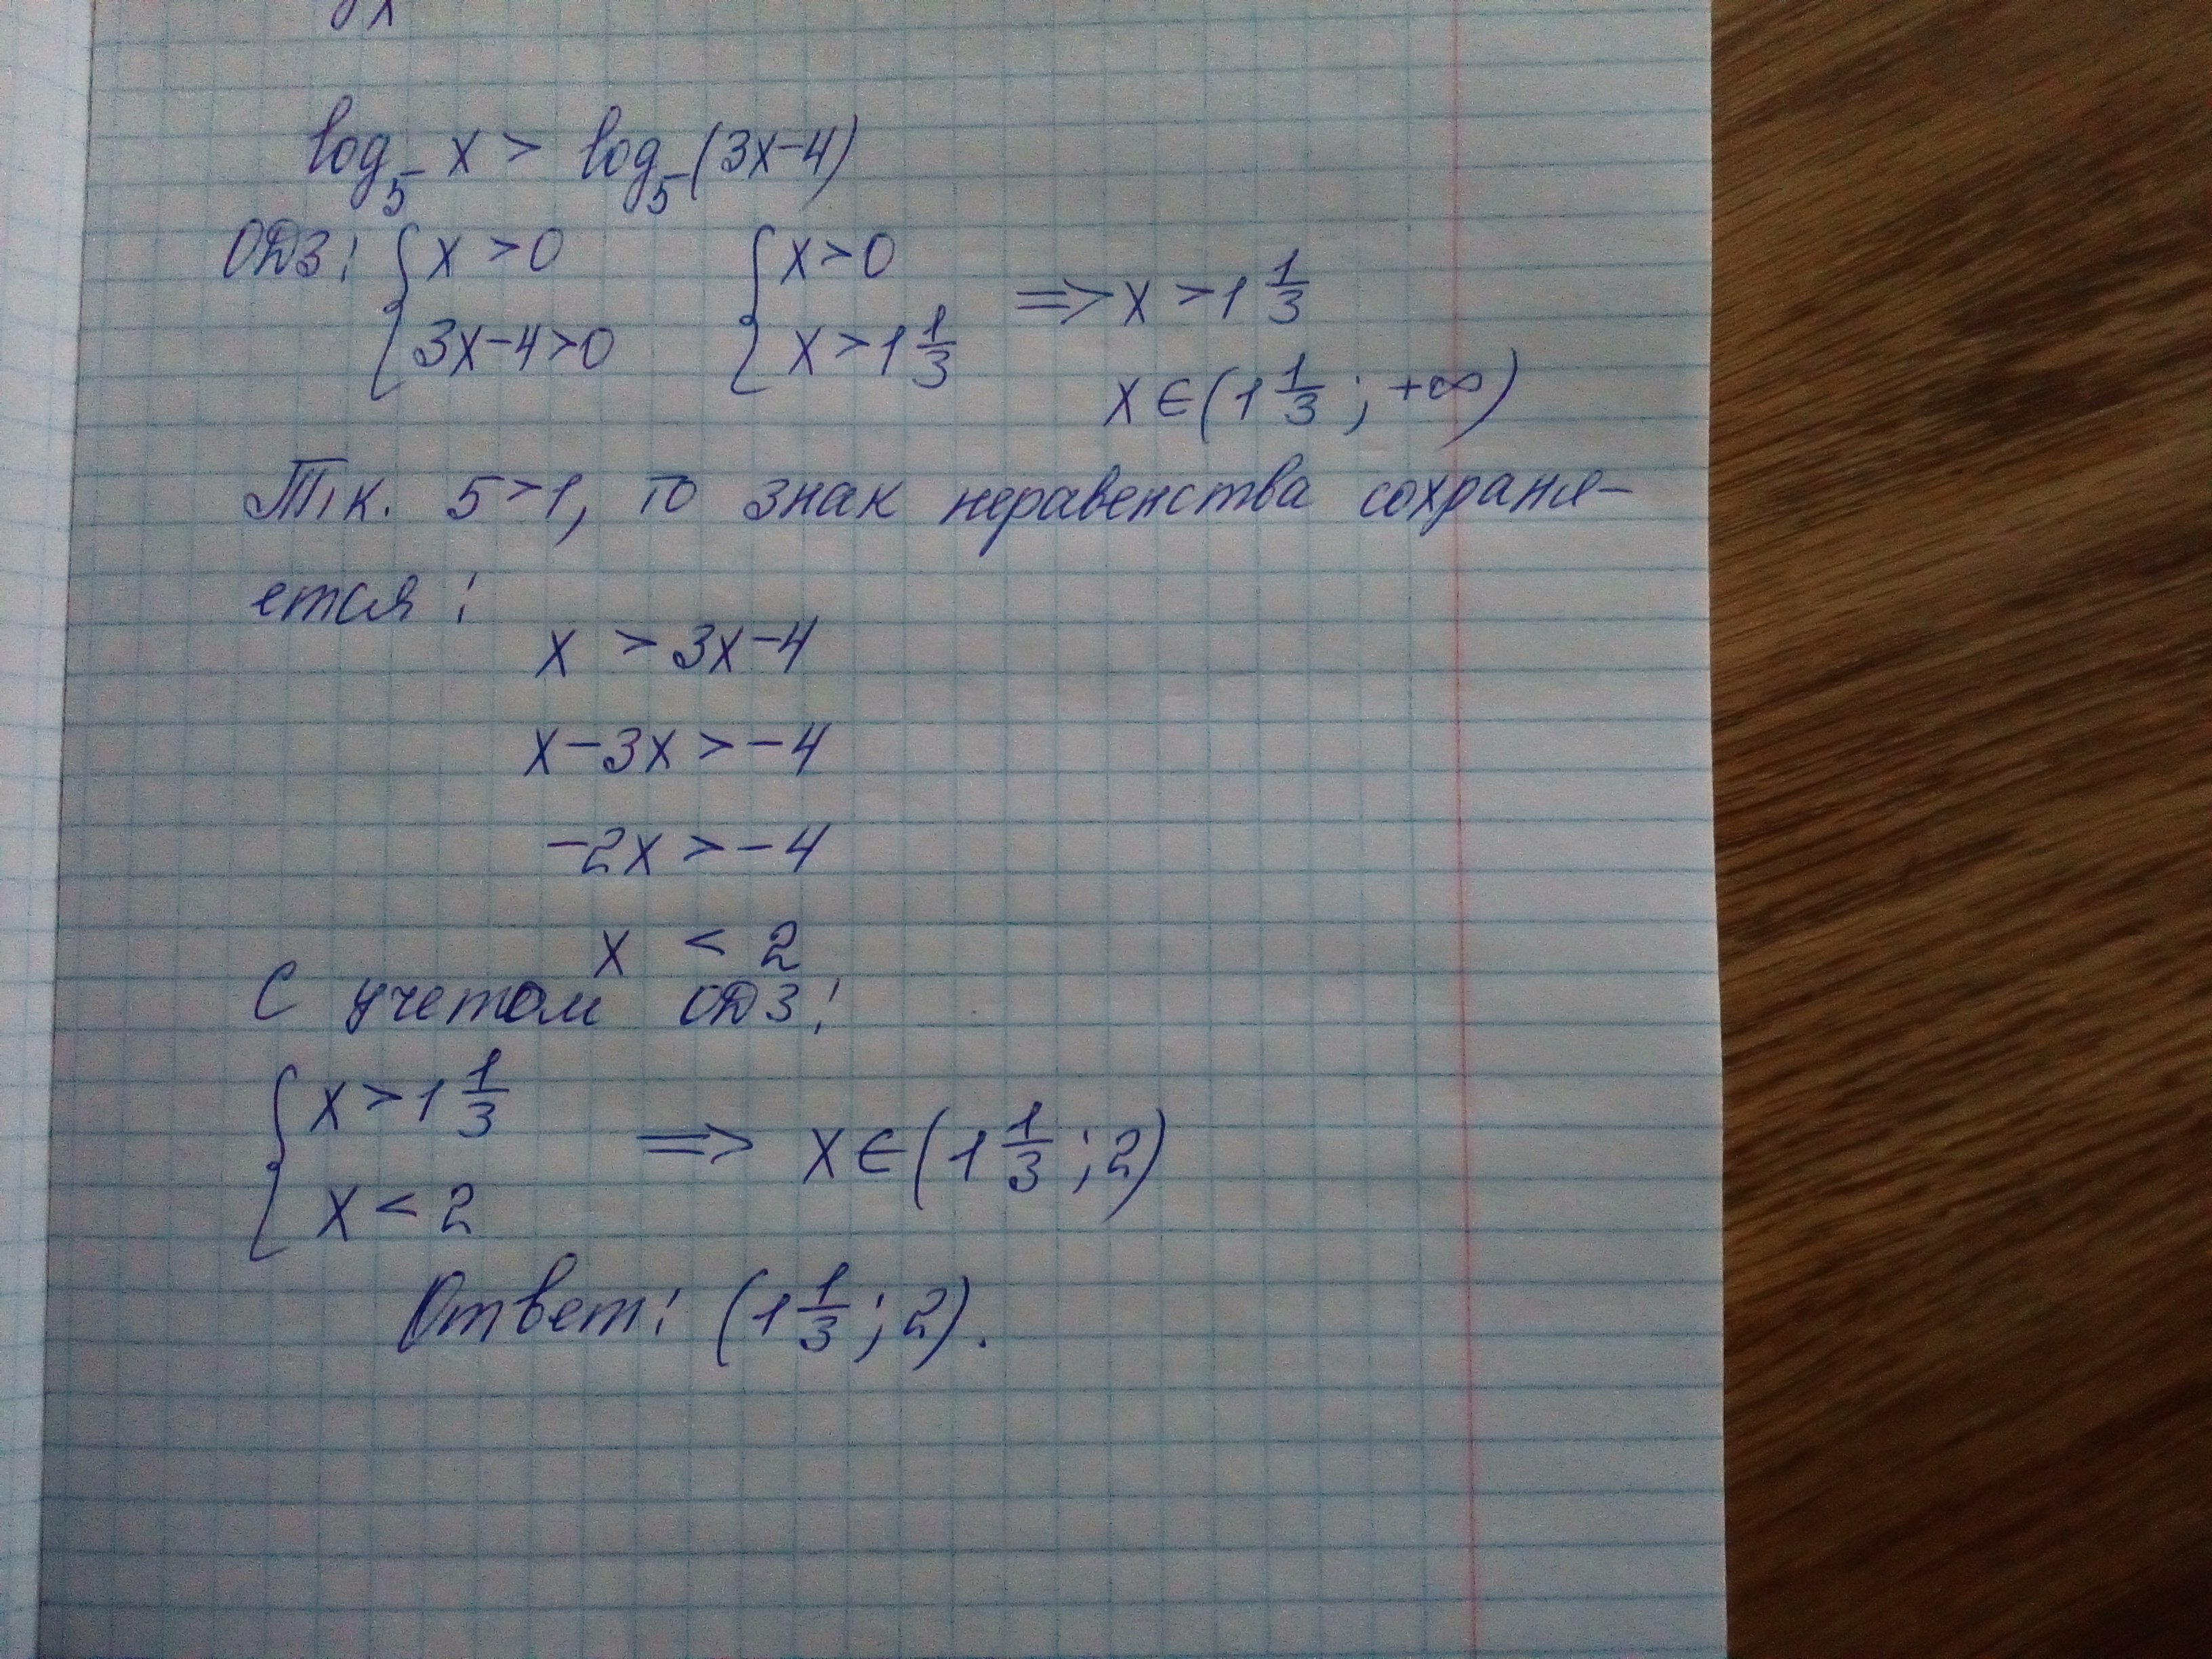 log₅ x > log₅(3x-4)
ОДЗ: { x > 0 { x > 0 ⇒ x > 1 1/3
3x-4>0 x > 1 1/3
x ∈ (1 1/3 ; +∞)
Т.к. 5>1, то знак неравенства сохраня-
ется:
x > 3x-4
x-3x > -4
-2x > -4
x < 2
С учетом ОДЗ:
{ x > 1 1/3
x < 2 ⇒ x ∈ (1 1/3 ; 2)
Ответ: (1 1/3 ; 2).